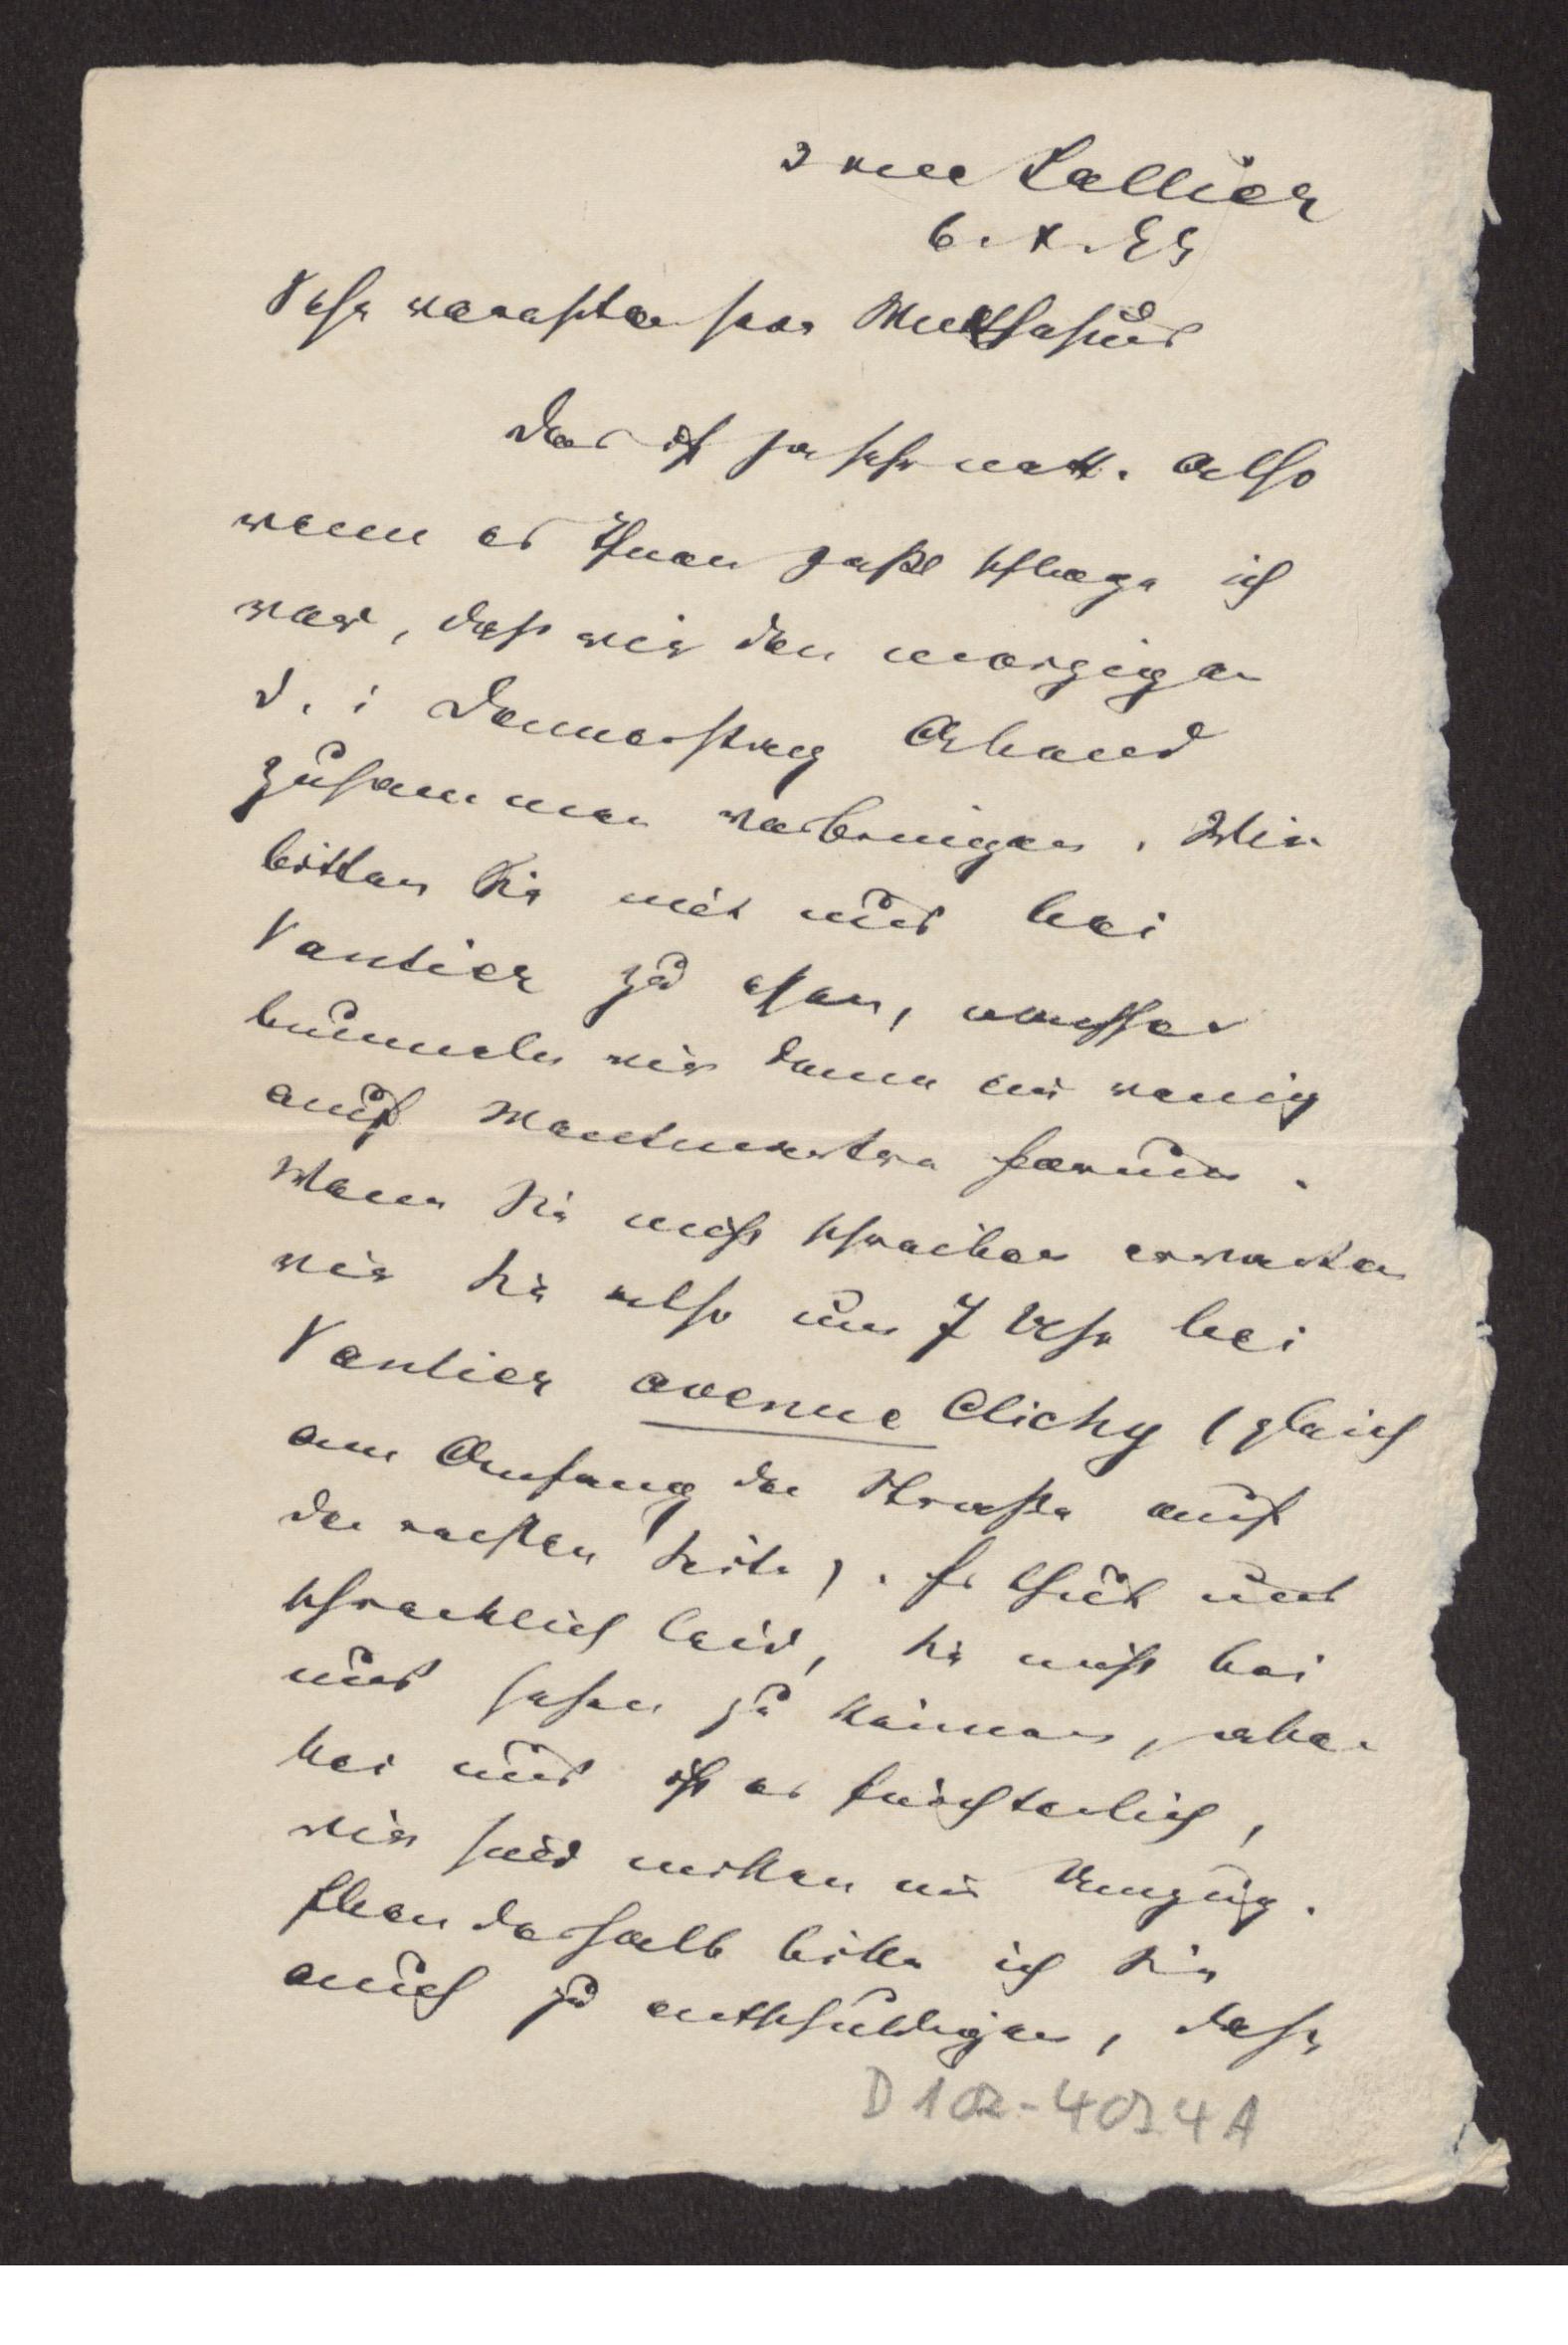 2 rue Lallier
6. X. 99
Sehr verehrter Herr Muthesius
Das ist ja sehr nett. Also
wenn es Ihnen paßt schlage ich
vor, daß wir den morgigen
d. i. Donnerstag Abend
zusammen verbringen. Wir
bitten Sie mit uns bei
Vantier zu essen, nachher
bummeln wir dann ein wenig
auf Montmartre herum.
Wenn Sie nicht schreiben erwarten
wir Sie also um 7 Uhr bei
Vantier avenue Clichy (gleich
am Anfang der Straße auf
der rechten Seite). Es thut uns
schrecklich leid, Sie nicht bei
uns sehen zu können, aber
bei uns ist es fürchterlich,
wir sind mitten im Umzug.
Eben deshalb bitte ich Sie
auch zu entschuldigen, daß
D 102-4024 A